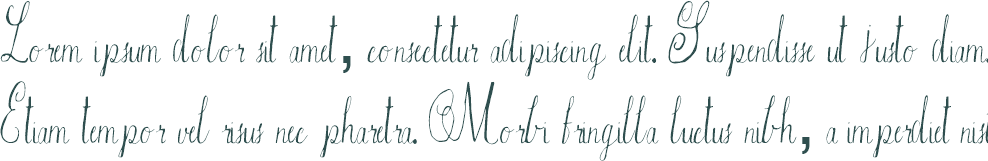 Lorem ipsum dolor sit amet, consectetur adipiscing elit. Suspendisse ut justo diam.
Etiam tempor vel risus nec pharetra. Morbi fringilla luctus nibh, a imperdiet nisl